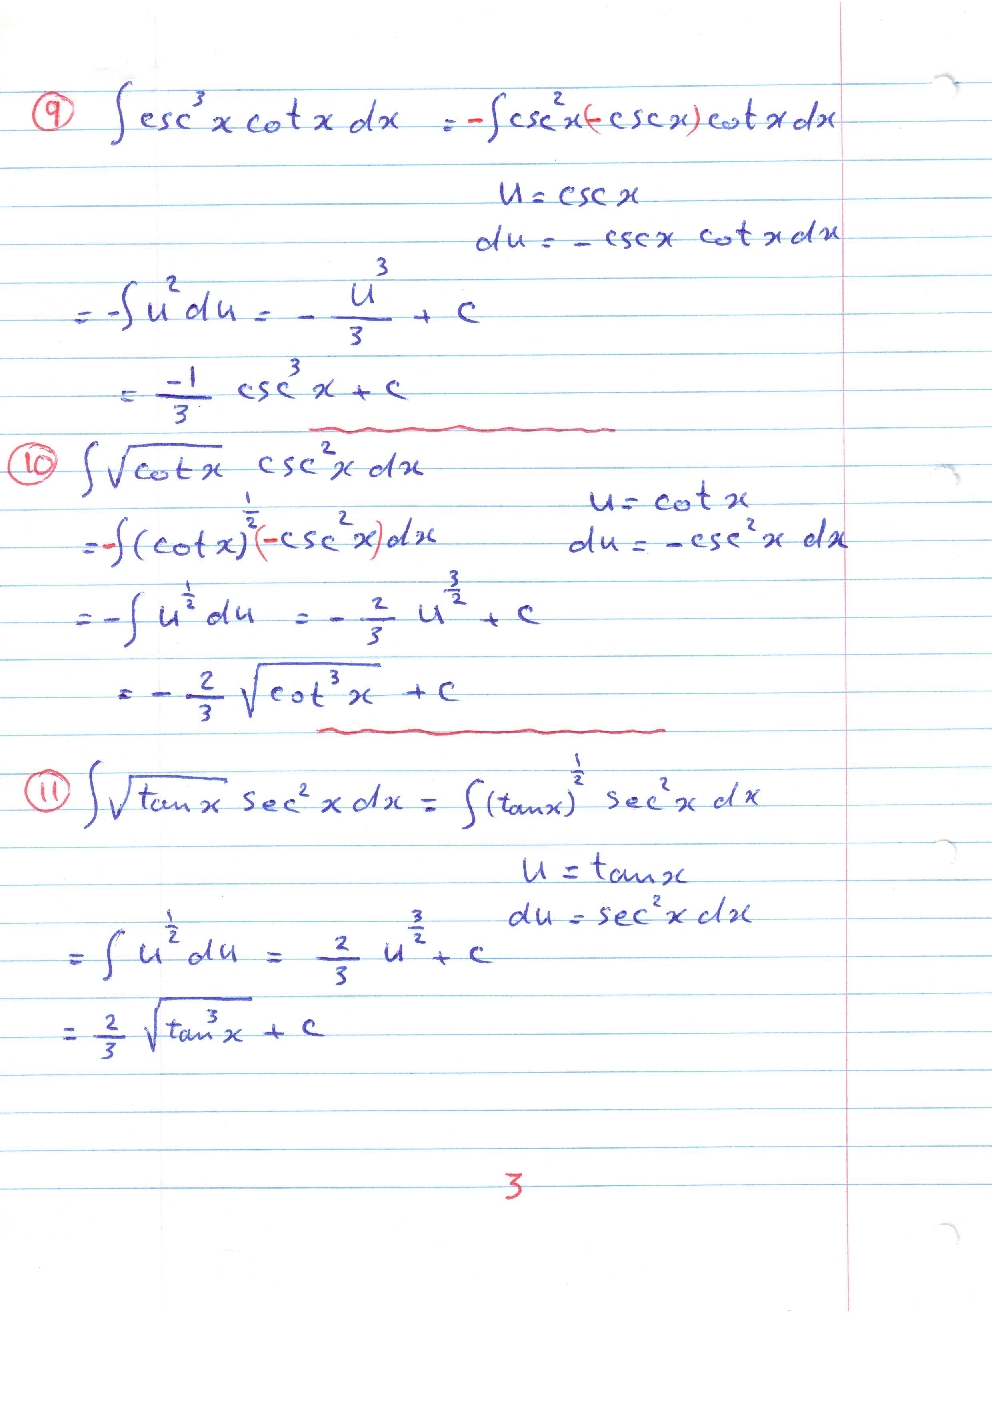 ⑨ ∫ csc³x cot x dx = -∫csc²x(-csc x)cot x dx
u = csc x
du = - csc x cot x dx
= -∫u² du = - u³/3 + c
= -1/3 csc³ x + c
⑩ ∫√(cot x) csc²x dx
u = cot x
= -∫(cot x)^(1/2) (-csc²x)dx
du = -csc²x dx
= -∫ u^(1/2) du = - 2/3 u^(3/2) + c
= - 2/3 √(cot³x) + c
⑪ ∫√(tan x) sec² x dx = ∫(tan x)^(1/2) sec²x dx
u = tan x
du = sec²x dx
= ∫ u^(1/2) du = 2/3 u^(3/2) + c
= 2/3 √(tan³x) + c
3